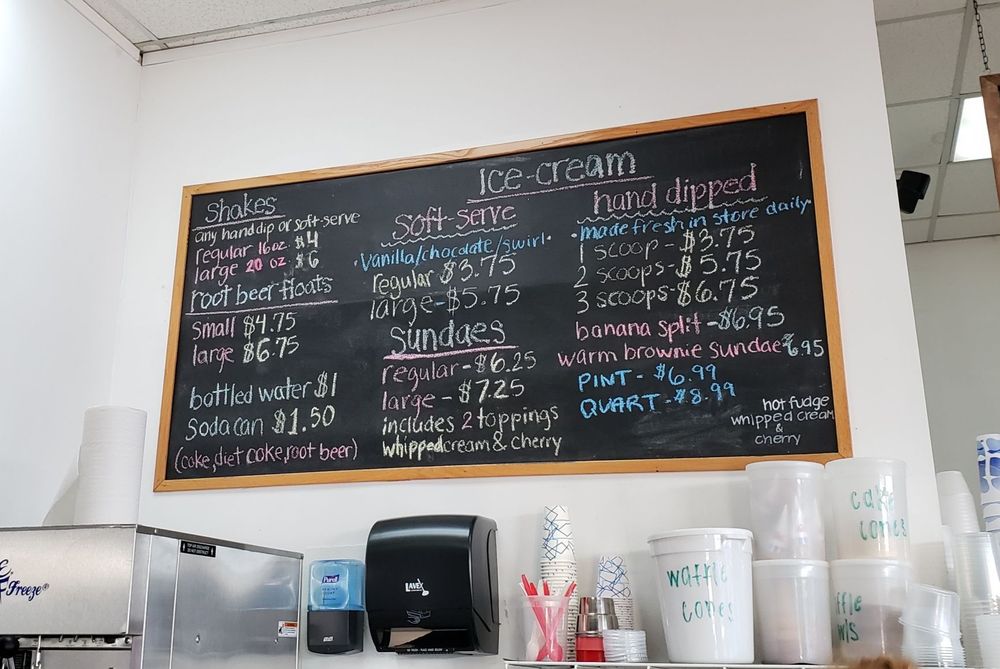 Ice-cream
Shakes
any hand dip or soft-serve
regular 16oz. $4
large 20 oz. $6
root beer floats
Small $4.75
large $6.75
bottled water $1
Soda can $1.50
(coke, diet coke, root beer)
Soft-serve
·Vanilla/chocolate/swirl·
regular $3.75
large-$5.75
Sundaes
regular-$6.25
large-$7.25
includes 2 toppings
whipped cream & cherry
hand dipped
·made fresh in store daily·
1 scoop-$3.75
2 scoops-$5.75
3 scoops-$6.75
banana split-$6.95
warm brownie sundae $6.95
PINT-$6.99
QUART-$8.99
hot fudge
whipped cream
&
cherry
Freeze®
PURELL
LAVEX
waffle
cones
cake
cones